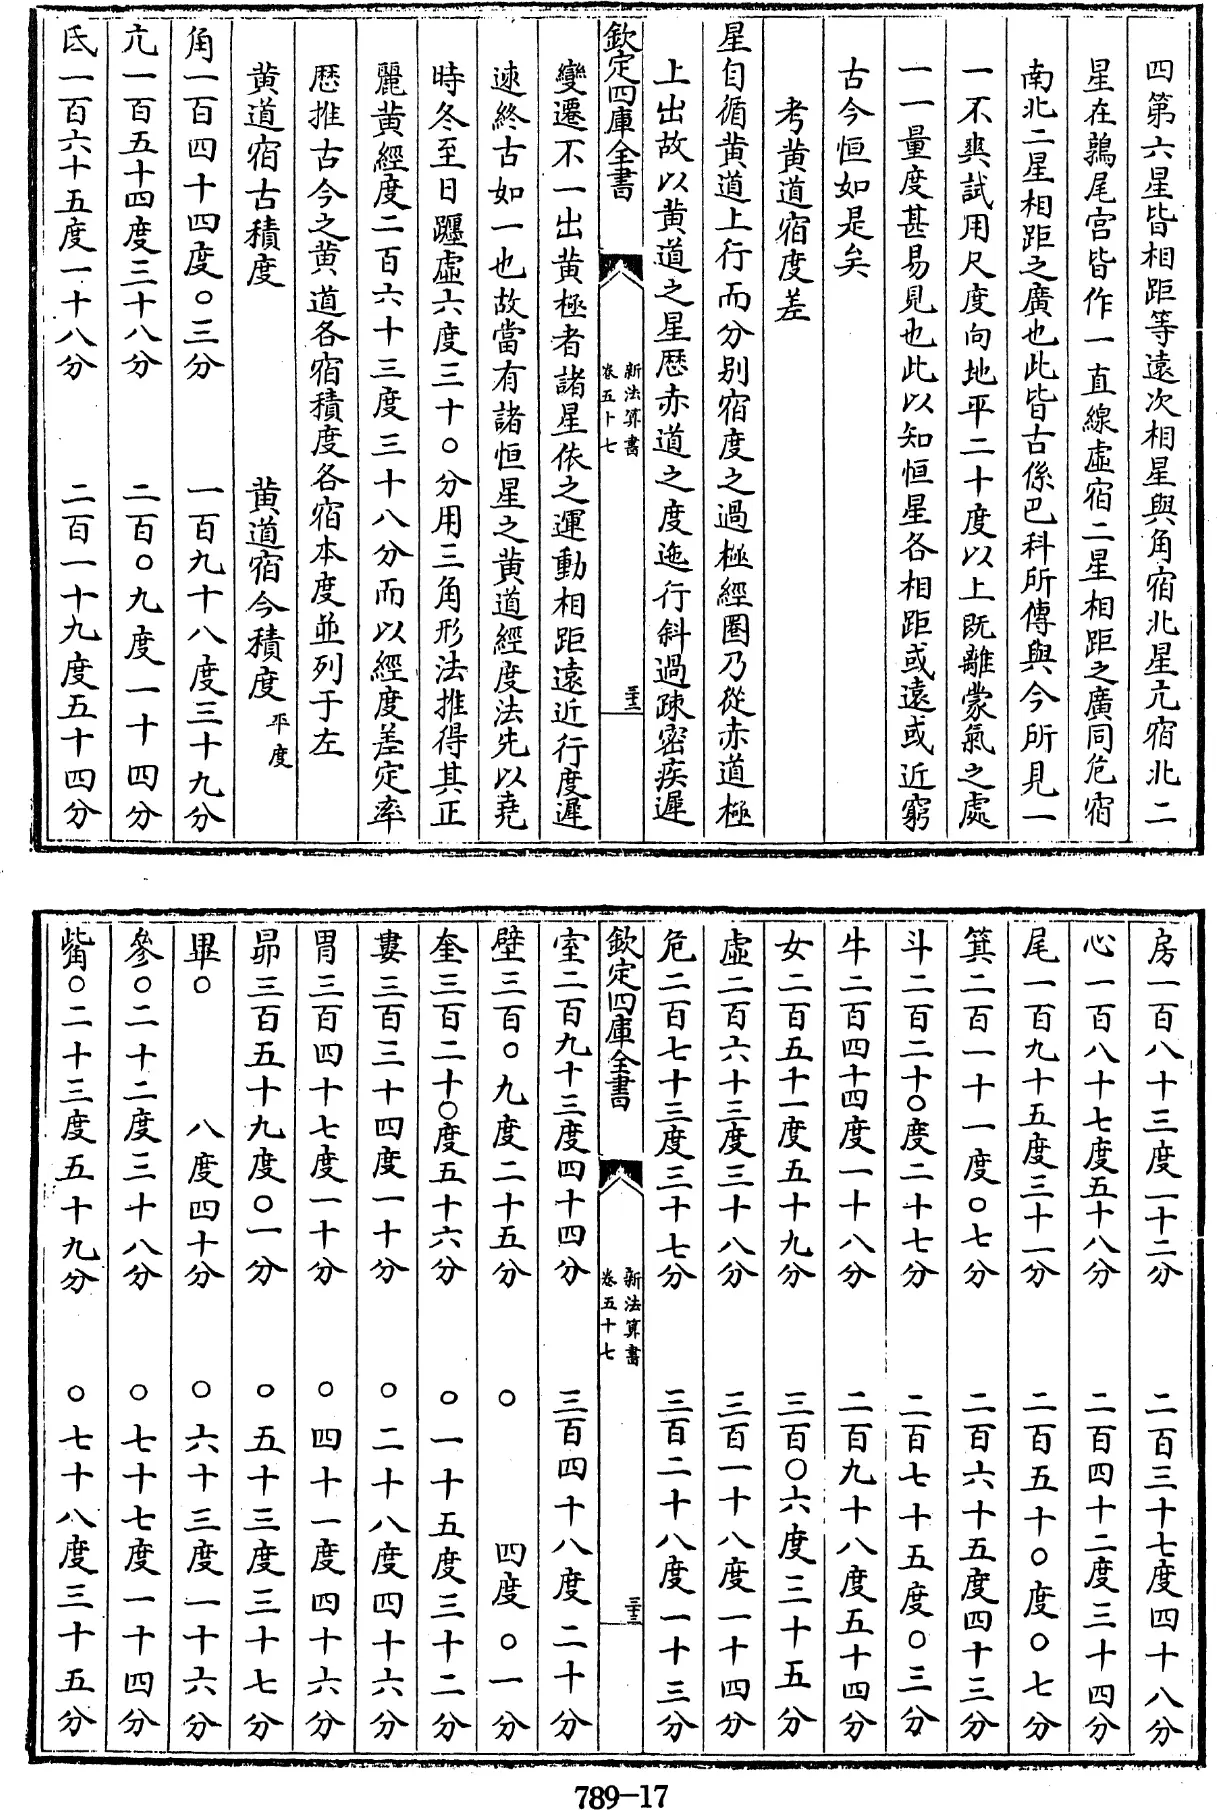 四第六星皆相距等遠次相星與角宿北星亢宿北二
星在鶉尾宫皆作一直線虛宿二星相距之廣同危宿
南北二星相距之廣也此皆古係巴科所傳與今所見一
一不爽試用尺度向地平二十度以上既離蒙氣之處
一一量度甚易見也此以知恒星各相距或遠或近窮
古今恒如是矣
考黄道宿度差
星自循黄道上行而分别宿度之過極經圈乃從赤道極
上出故以黄道之星歴赤道之度迤行斜過疎密疾遲
欽定四庫全書
新法算書
卷五十七
三十二
變遷不一出黄極者諸星依之運動相距遠近行度遲
速終古如一也故當有諸恒星之黄道經度法先以堯
時冬至日躔虛六度三十〇分用三角形法推得其正
麗黄經度二百六十三度三十八分而以經度差定率
歴推古今之黄道各宿積度各宿本度並列于左
黄道宿古積度 黄道宿今積度平度
角一百四十四度〇三分 一百九十八度三十九分
亢一百五十四度三十八分 二百〇九度一十四分
氐一百六十五度一十八分 二百一十九度五十四分
房一百八十三度一十二分 二百三十七度四十八分
心一百八十七度五十八分 二百四十二度三十四分
尾一百九十五度三十一分 二百五十〇度〇七分
箕二百一十一度〇七分 二百六十五度四十三分
斗二百二十〇度二十七分 二百七十五度〇三分
牛二百四十四度一十八分 二百九十八度五十四分
女二百五十一度五十九分 三百〇六度三十五分
虛二百六十三度三十八分 三百一十八度一十四分
危二百七十三度三十七分 三百二十八度一十三分
欽定四庫全書
新法算書
卷五十七
三十三
室二百九十三度四十四分 三百四十八度二十分
壁三百〇九度二十五分 〇 四度〇一分
奎三百二十〇度五十六分 〇一十五度三十二分
婁三百三十四度一十分 〇二十八度四十六分
胃三百四十七度一十分 〇四十一度四十六分
昴三百五十九度〇一分 〇五十三度三十七分
畢〇 八度四十分 〇六十三度一十六分
參〇二十二度三十八分 〇七十七度一十四分
觜〇二十三度五十九分 〇七十八度三十五分
789-17